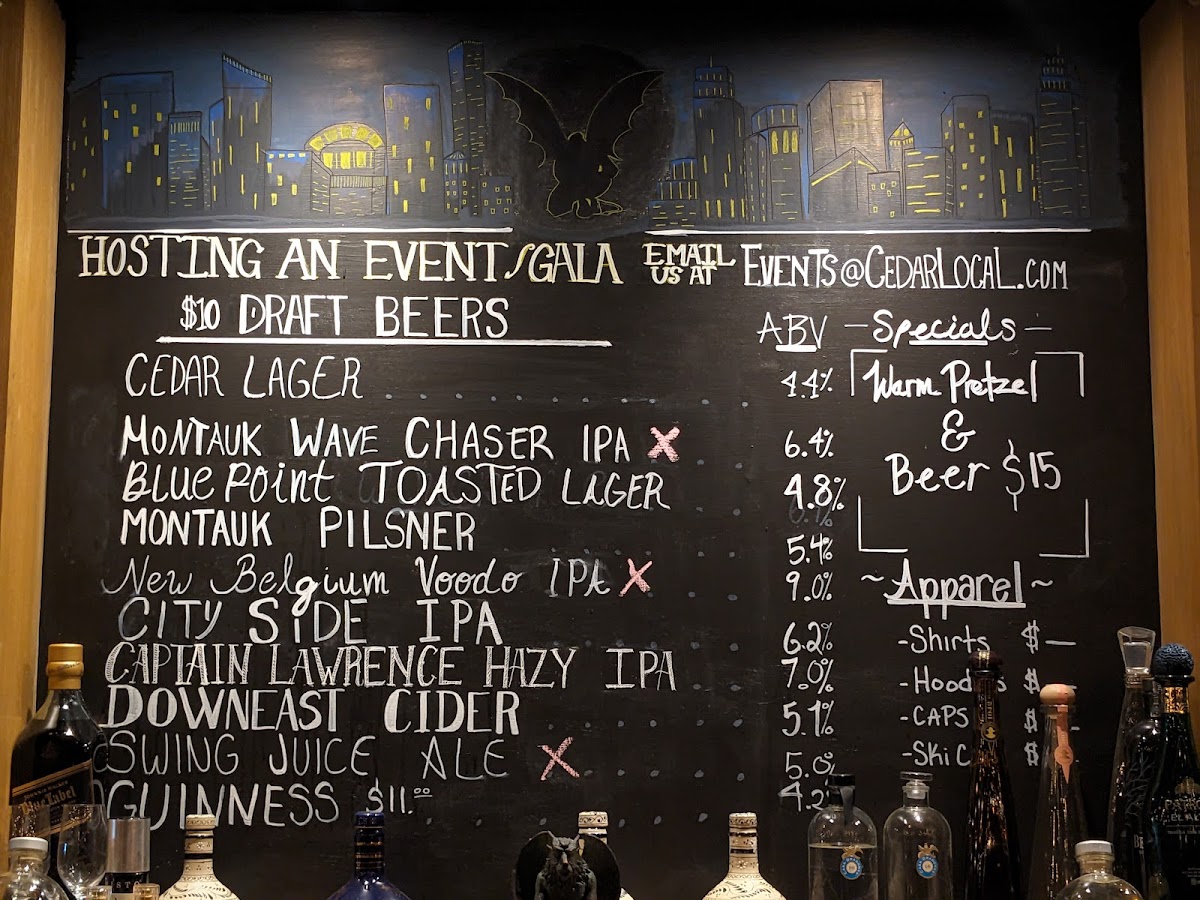 HOSTING AN EVENT/GALA EMAIL US AT EVENTS@CEDARLOCAL.COM
$10 DRAFT BEERS
ABV
CEDAR LAGER 4.4%
MONTAUK WAVE CHASER IPA X 6.4%
BLUE POINT TOASTED LAGER 4.8%
MONTAUK PILSNER 5.4%
New Belgium Voodo IPA X 9.0%
CITY SIDE IPA 6.2%
CAPTAIN LAWRENCE HAZY IPA 7.0%
DOWNEAST CIDER 5.1%
SWING JUICE ALE X 5.0%
GUINNESS $11.00 4.2
- Specials -
Warm Pretzel
&
Beer $15
~ Apparel ~
- Shirts $ —
- Hood s $
- CAPS $
- Ski C $
Blue Label